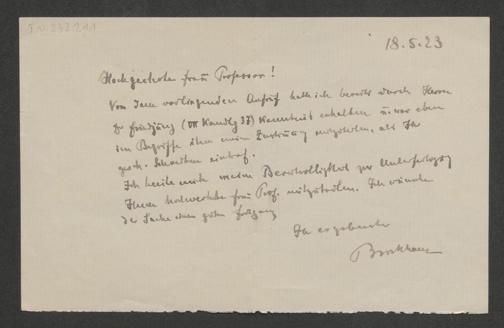 I.N. 232.211
18.5.23
Hochgeehrte Frau Professor!
Von dem vorliegenden Aufruf hatte ich bereits durch Herrn
Dr Friedjung (VII Kandlg 37) Kenntnis erhalten u. war eben
im Begriffe ihm meine Zustimmung mitzuteilen, als Ihr
geeh. Schreiben eintraf.
Ich beeile mich meine Bereitwilligkeit zur Unterfertigung
Ihnen Frau Prof. mitzuteilen. Ich wünsche
der Sache einen guten Fortgang
Ihr ergebenster